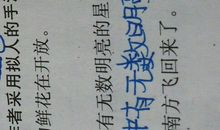 者采用拟人的手
鲜花在开放。
有无数明亮的星
有无数明
南方飞回来了。